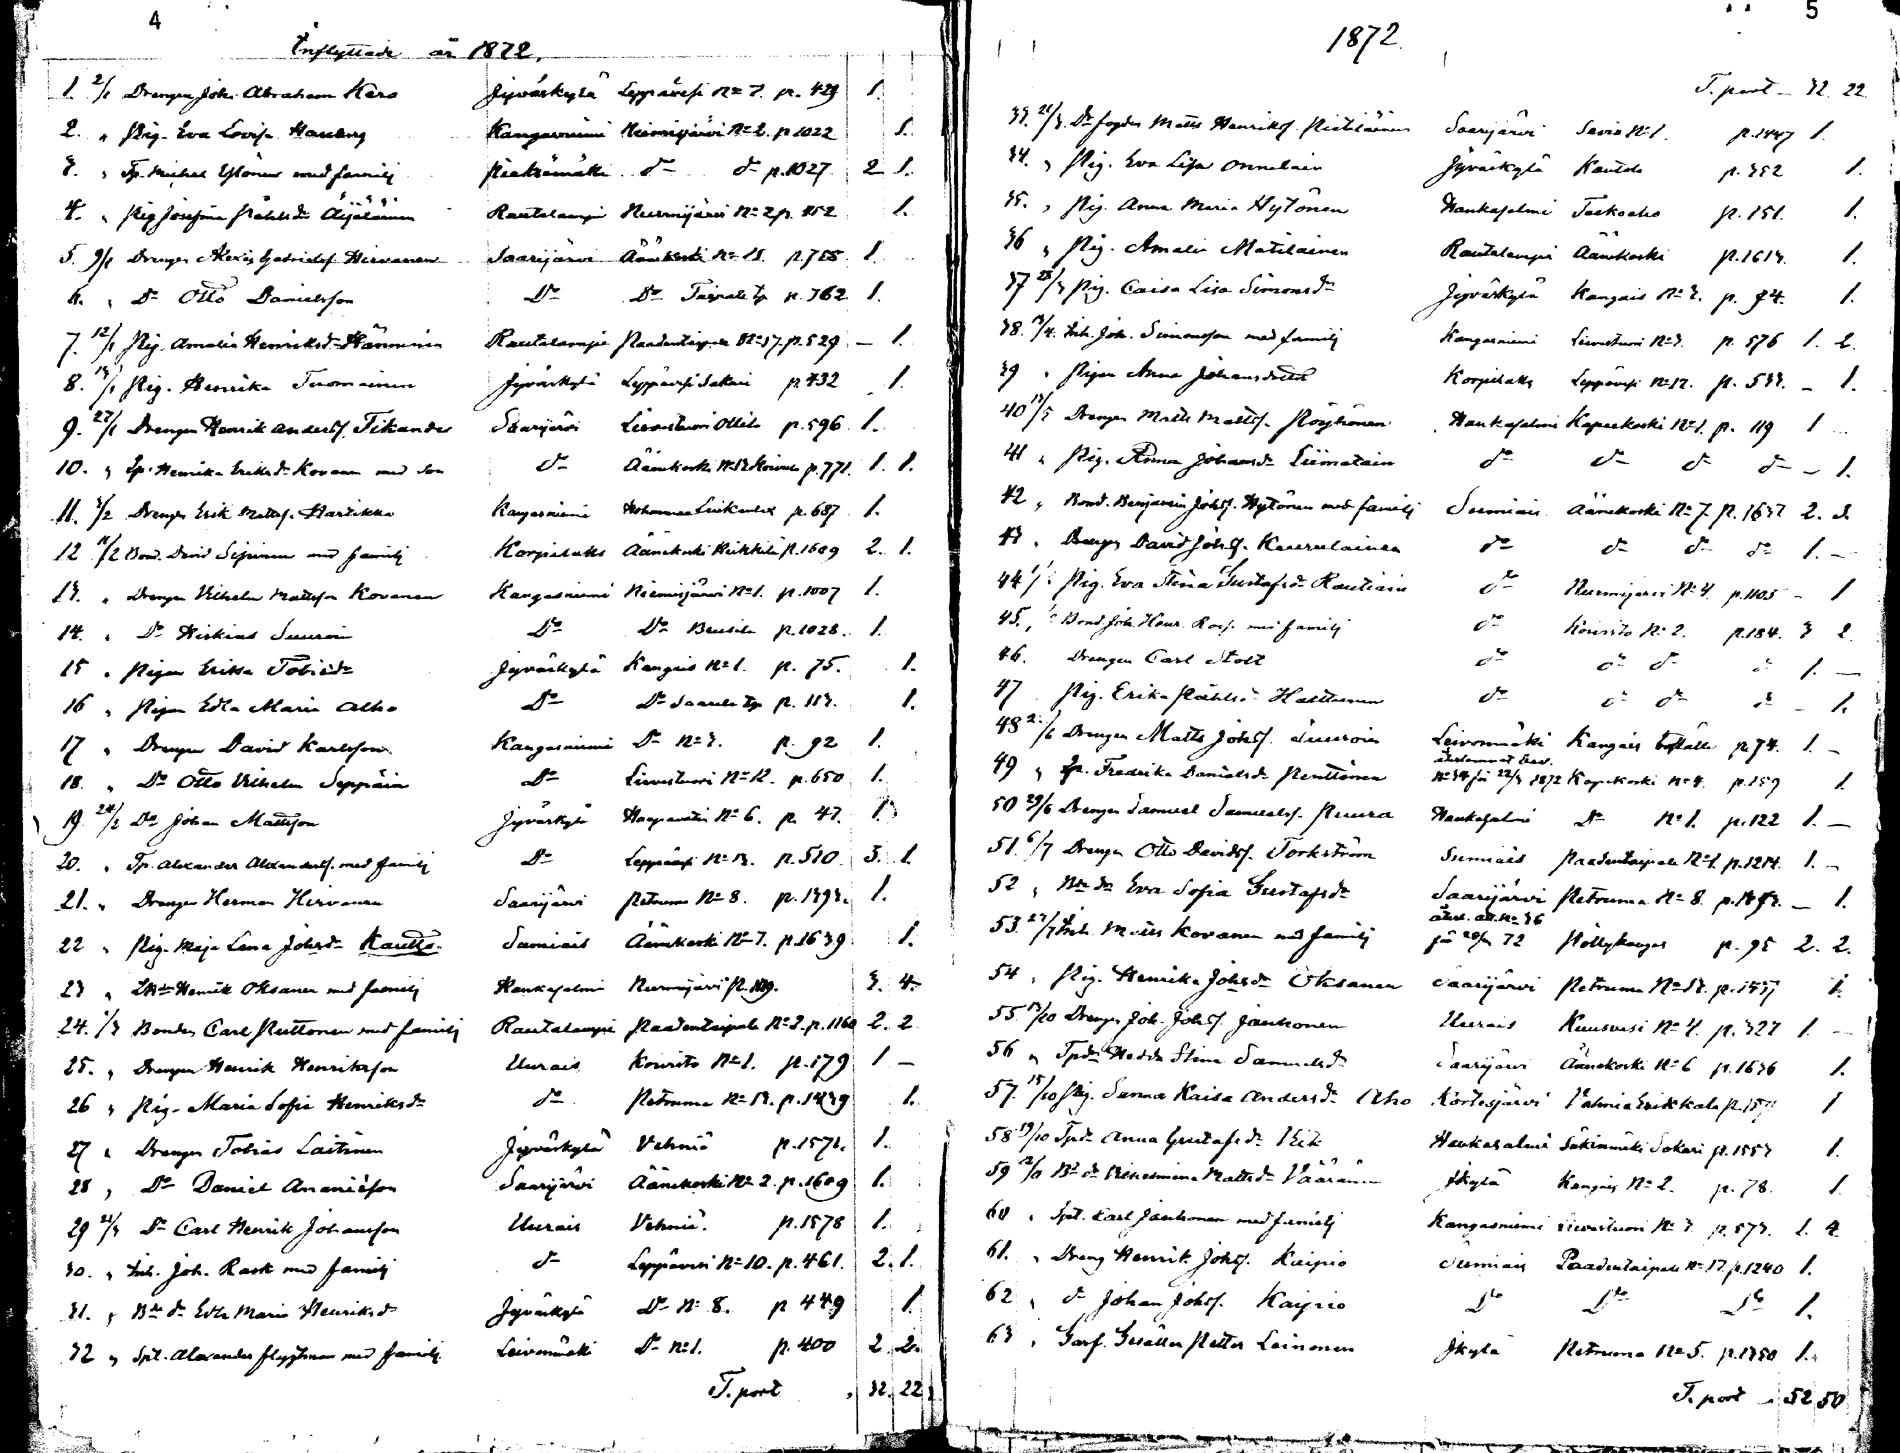 4
Inflyttade år 1872.
1. 2/1 Drengen Joh. Abraham Karo Jyväskylä Leppävesi No 7. p. 429 1.
2. " Pig. Eva Lovisa Kangasniemi Niemisjärvi No 2. p. 1022 1.
3. " Tp. Michel Ylönen med familj Pieksämäki do do p. 1027 2 1.
4. " Pig Josefina Påhlsdr Äijäläinen Rautalampi Nurmijärvi No 2 p. 1.
5. 9/1 Drengen Alexis Gabrielsf. Hirvonen Saarijärvi Äänekoski No 15 p. 1.
6. " Do Otto Danielsson Do Do Taipale tp p. 762 1.
7. 12/1 Pig. Amalia Henriksdr Hänninen Rautalampi Paadentaipale No 17. p. 529 – 1.
8. 13/1 Pig. Henrika Tuomainen Jyväskylä Leppävesi Sakari p. 432 1.
9. 27/1 Drengen Henrik Andersf. Tikander Saarijärvi Lievestuori Ollila p. 596 1.
10. " Tp. Henrika Eriksdr Kovanen med son do Äänekoski p. 771. 1. 1.
11. 3/2 Drengen Erik Mattsf. Hartikka Kangasniemi p. 687 1.
12 11/2 Bond. David med familj Korpilaks Äänekoski Heikkilä p. 1609 2. 1.
13. " Drengen Vilhelm Mattsson Kovanen Kangasniemi Niemisjärvi No 1. p. 1007 1.
14. " Do Hiskias Suuroin Do Do p. 1028. 1.
15 " Pigan Erika Tobiedr Jyväskylä Kangais No 1. p. 75. 1.
16 " Pigan Edla Maria Alho Do Do Saarela tp p. 113. 1.
17 " Drengen David Karlsson Kangasniemi Do No 3. p. 92 1.
18. " Do Otto Vilhelm Seppäin Do Lievestuori No 12. p. 650 1.
19. 24/2 Do Johan Mattsson Jyväskylä Haapavatsi No 6. p. 47. 1.
20. " Tp. Alexander Alexandersf. med familj Do Leppävesi No 13. p. 510 3. 1.
21. " Drengen Herman Hirvonen Saarijärvi Petruma No 8. p. 1393. 1.
22 " Pig. Maja Lena Johsdr Kautto Sumiais Äänekoski No 7. p. 1639 1.
23 " Henrik Oksanen med familj Hankasalmi Nurmijärvi p. 3. 4.
24. 1/3 Bonden Carl Ruttonen med familj Rautalampi Paadentaipale No 2. p. 1160 2. 2
25. " Drengen Henrik Henriksson Uurais Koivisto No 1. p. 179 1 –
26 " Pig. Maria Sofia Henriksdr do Petruma No 13. p. 1439 1.
27 " Drengen Tobias Laitinen Jyväskylä Vehniä p. 1571. 1.
28 " Do Daniel Ananiesson Saarijärvi Äänekoski No 2. p. 1609 1.
29 21/3 Do Carl Henrik Johansson Uurais Vehniä. p. 1578 1.
30. " Inh. Joh. Rask med familj do Leppävesi No 10. p. 461. 2. 1.
31. " Bde dr Edla Maria Henriksdr Jyväskylä Do No 8. p 449 1.
32 " Spt. Alexander med familj Leivonmäki Do No 1. p. 400 2 2.
T. port 32. 22
5
1872.
T. port – 32. 22
33. 21/3. Matts Henriksf. Saarijärvi Savio No 1. p. 1447 1.
34. " Pig. Eva Lisa Onnelain Jyväskylä Kautola p. 352 1.
35. " Pig. Anna Maria Hytönen Hankasalmi p. 151. 1.
36 " Pig. Amalia Matilainen Rautalampi Äänekoski p. 1613. 1.
37 28/3 Pig. Caisa Lisa Simonsdr Jyväskylä Kangais No 3. p. 94. 1.
38. 13/4. Inh. Joh. Simonsson med familj Kangasniemi Lievestuori No 3. p. 576 1. 2.
39 " Pigan Anna Johansdotter Korpilaks Leppävesi No 12. p. 533. – 1.
40 13/5 Drengen Matts Mattsf. Pöyhönen Hankasalmi Kapeekoski No 1. p. 119 1
41 " Pig. Anna Johansdr Liimatain do do do do – 1.
42 " Bond. Benjamin Johsf. Hytönen med familj Sumiais Äänekoski No 7. p. 1637 2. 3.
43 " Drengen David Johsf. Kauralainen do do do do 1. –
44 Pig. Eva Stina Gustafsdr Rautiain do Nurmijärvi No 4. p. 1105 – 1
45. Bond. Joh. Henr. med familj do Koivisto No 2. p. 184. 3 2
46. Drengen Carl Stolt do do do 1. –
47 Pig. Erika Påhlsdr Halttunen do do do – 1.
48 Drengen Matts Johsf. Suuroin Leivonmäki Kangais boställe p 74. 1. –
49 " Tp. Fredrika Danielsdr Penttinen No 34 på 22/3 1872 Kapeekoski No 4. p. 159 1.
50 29/6 Drengen Samuel Samuelsf. Ruura Hankasalmi Do No 1. p. 122 1. –
51. 6/7 Drengen Otto Davidsf. Torkström Sumiais Paadentaipale No 1. p. 1214. 1. –
52 " Bde dr Eva Sofia Gustafsdr Saarijärvi Petruma No 8. p. – 1.
53. 27/7 Inh. Matts Kovanen med familj på 72 Höttykangas p. 95 2. 2.
54 " Pig. Henrika Johsdr Oksanen Saarijärvi Petruma No 12. p. 1437 1.
55 13/10 Drengen Joh. Johsf. Jauhonen Uurais Kuusvesi No 4. p. 327 1. –
56 " Hedda Stina Samuelsdr Saarijärvi Äänekoski No 6 p. 1636 1.
57. 15/10 Pig. Sanna Kaisa Andersdr Aho Kortesjärvi Vehniä Erikkala p. 1
58 19/10 Anna Gustafsdr Hankasalmi Säkinmäki Sakari p. 1557 1.
59 Bde dr Vilhelmina Mattsdr Väänänen Jkylä Kangais No 2. p. 78. 1.
60 " Spt. Karl Jauhonen med familj Kangasniemi Lievestuori No 3 p. 573. 1. 4.
61. " Dreng Henrik Johsf. Kaipio Sumiais Paadentaipale No 17. p. 1240 1.
62 " do Johan Johsf. Kaipio Do Do Do 1.
63 " Garf. Gesällen Petter Leinonen Jkylä Petruma No 5. p. 1350 1.
T. port – 52 50